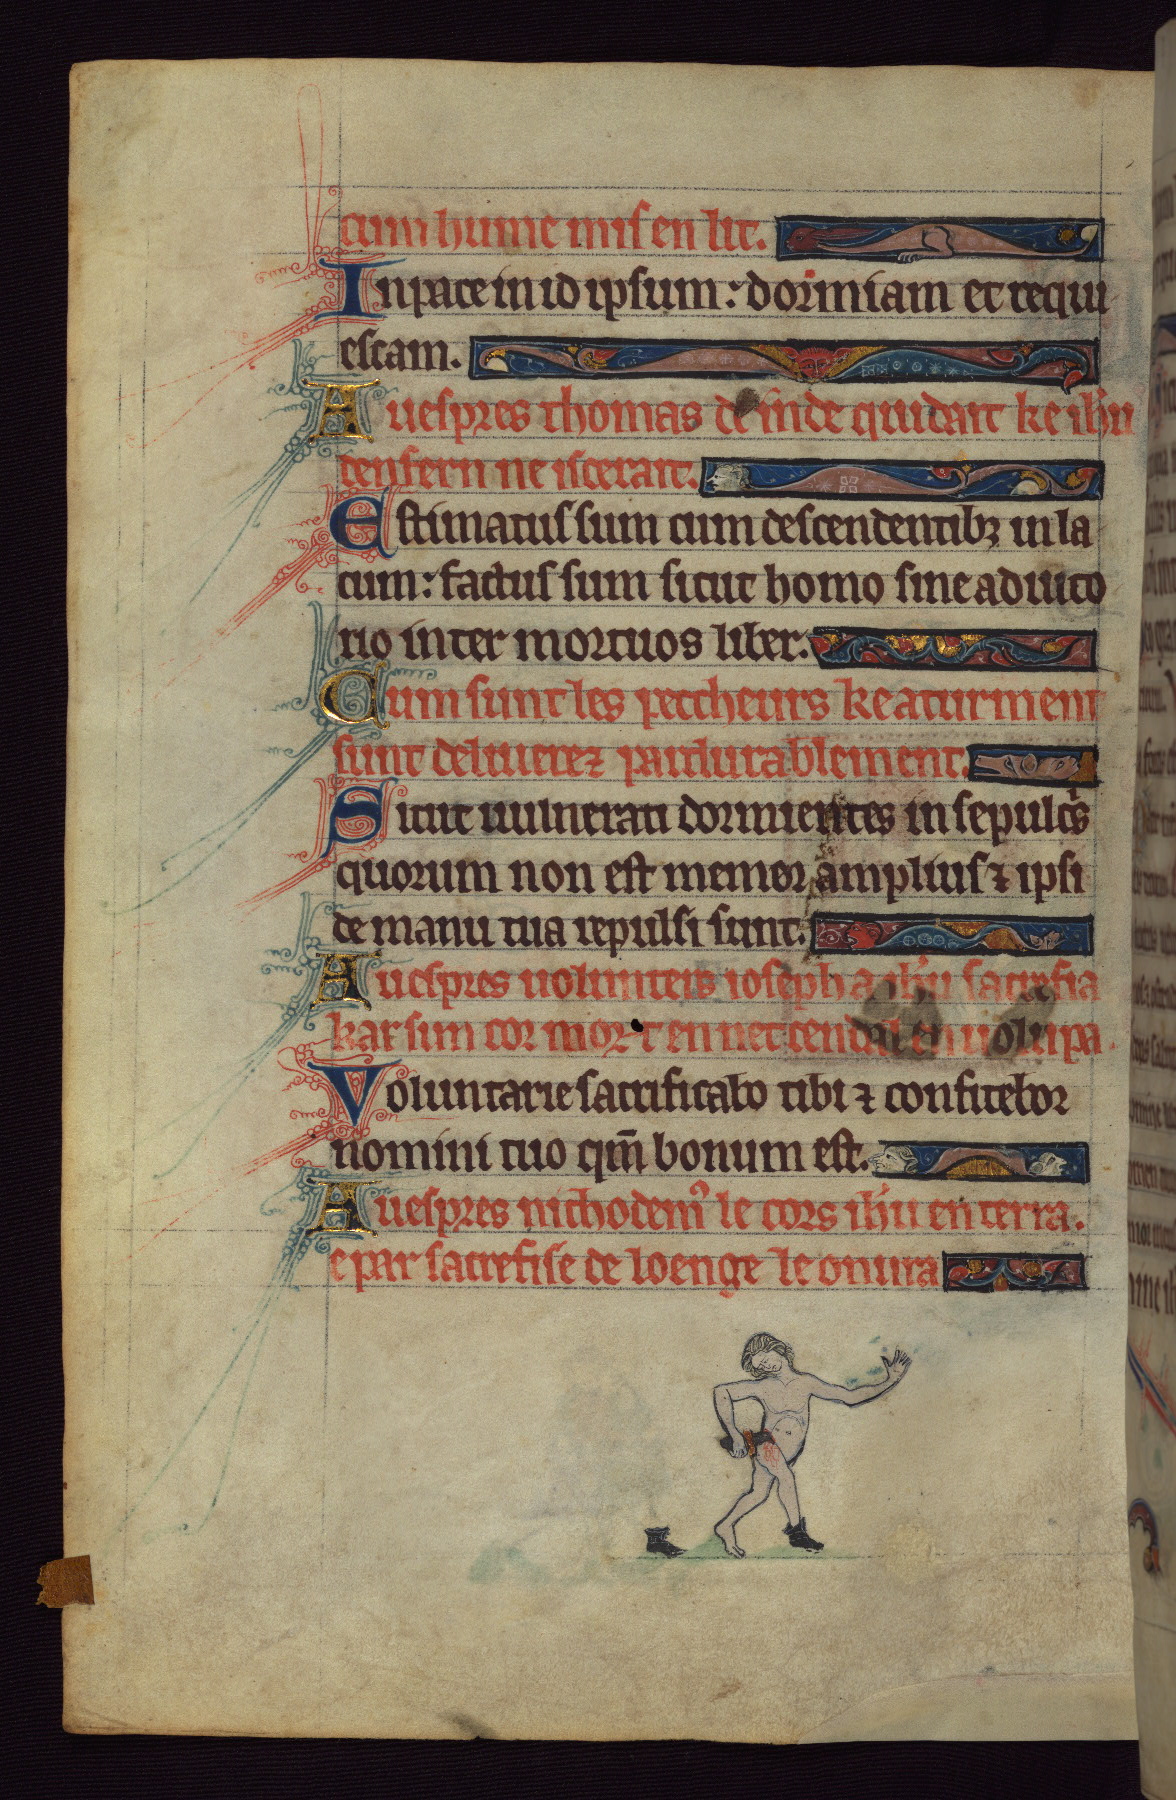 cum hume mis en lit.
In pace in id ipsum: dormiam et requi
escam.
A uespres thomas de inde quidait ke ihu
denfern ne iscerait.
Estimatus sum cum descendentibꝫ in la
cum: factus sum sicut homo sine adiuto
rio inter mortuos liber.
Cum sunt les peccheurs ke a turment
sunt deliuerez pardurablement.
Sicut uulnerati dormientes in sepulcs
quorum non est memor amplius ⁊ ipsi
de manu tua repulsi sunt.
A uespres uolunteis ioseph a ihu sacrefia
kar sun cor mort en net cendal enuolupa.
Voluntarie sacrificabo tibi ⁊ confitebor
nomini tuo qm̄ bonum est.
A uespres nichodemꝰ le cors ihu en terra.
e par sacrefise de loenge le onura